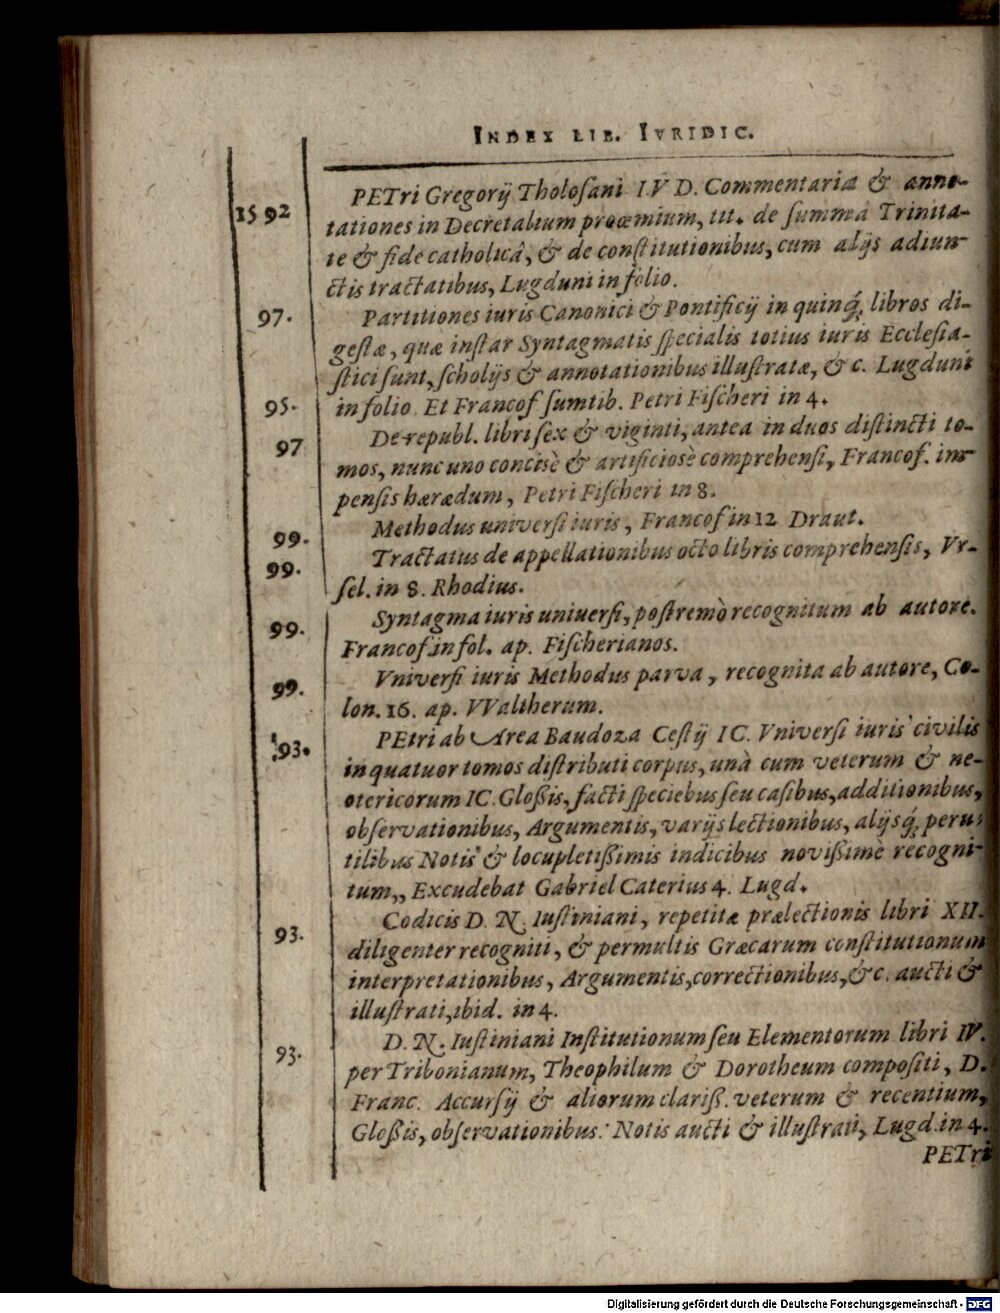 INDEX LIB. IVRIDIC.
PETri Gregorij Tholosani I.V D. Commentaria & anno-
1592 tationes in Decretalium proœmium, tit. de summa Trinita-
te & fide catholicâ, & de constitutionibus, cum alijs adiun-
ctis tractatibus, Lugduni in folio.
97. Partitiones iuris Canonici & Pontificij in quinq́; libros di-
gestæ, quæ instar Syntagmatis specialis totius iuris Ecclesia-
stici sunt, scholijs & annotationibus illustratæ, & c. Lugduni
95. in folio Et Francof sumtib. Petri Fischeri in 4.
97 De republ. libri sex & viginti, antea in duos distincti to-
mos, nunc uno concisè & artificiosè comprehensi, Francof. im-
pensis hæredum, Petri Fischeri in 8.
99. Methodus universi iuris, Francof in 12 Draut.
99. Tractatus de appellationibus octo libris comprehensis, Vr-
sel. in 8. Rhodius.
99. Syntagma iuris uniuersi, postremò recognitum ab autore.
Francof. in fol. ap. Fischerianos.
99. Vniversi iuris Methodus parva, recognita ab autore, Co-
lon. 16. ap. VValtherum.
93. PEtri ab Area Baudoza Cestij IC. Vniversi iuris civilis
in quatuor tomos distributi corpus, unà cum veterum & ne-
otericorum IC. Gloßis, facti speciebus seu casibus, additionibus,
observationibus, Argumentis, varijs lectionibus, alijsq́; peru-
tilibus Notis & locupletißimis indicibus novißimè recogni-
tum,, Excudebat Gabriel Caterius 4. Lugd.
93. Codicis D. N. Iustiniani, repetitæ prælectionis libri XII.
diligenter recogniti, & permultis Græcarum constitutionum
interpretationibus, Argumentis, correctionibus, &c. aucti &
illustrati, ibid. in 4.
93. D. N. Iustiniani Institutionum seu Elementorum libri IV.
per Tribonianum, Theophilum & Dorotheum compositi, D.
Franc. Accursij & aliorum clariß. veterum & recentium,
Gloßis, observationibus. Notis aucti & illustrati, Lugd. in 4.
PETri
Digitalisierung gefördert durch die Deutsche Forschungsgemeinschaft - DFG